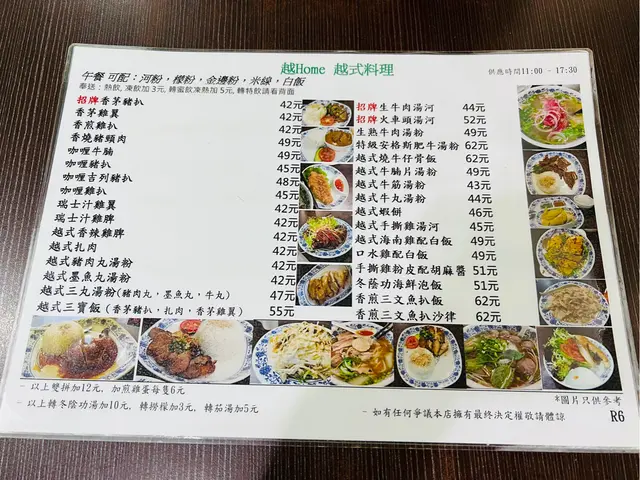 越Home 越式料理
供應時間11:00 - 17:30
午餐 可配：河粉，檬粉，金邊粉，米線，白飯
奉送：熱飲, 凍飲加 3元, 轉蜜飲凍熱加 5元, 轉特飲請看背面
招牌香茅豬扒 42元
香茅雞翼 42元
香煎雞扒 42元
香燒豬頸肉 49元
咖喱牛腩 49元
咖喱豬扒 45元
咖喱吉列豬扒 48元
咖喱雞扒 45元
瑞士汁雞翼 42元
瑞士汁雞髀 42元
越式香辣雞髀 42元
越式扎肉 42元
越式豬肉丸湯粉 42元
越式墨魚丸湯粉 42元
越式三丸湯粉(豬肉丸，墨魚丸，牛丸) 47元
越式三寶飯 (香茅豬扒，扎肉，香茅雞翼) 55元
招牌生牛肉湯河 44元
招牌火車頭湯河 52元
生熟牛肉湯粉 49元
特級安格斯肥牛湯粉 62元
越式燒牛仔骨飯 62元
越式牛腩片湯粉 49元
越式牛筋湯粉 43元
越式牛丸湯粉 44元
越式蝦餅 46元
越式手撕雞湯河 45元
越式海南雞配白飯 49元
口水雞配白飯 49元
手撕雞粉皮配胡麻醬 51元
冬蔭功海鮮泡飯 51元
香煎三文魚扒飯 62元
香煎三文魚扒沙律 62元
- 以上雙拼加12元, 加煎雞蛋每隻6元
- 以上轉冬陰功湯加10元, 轉撈檬加3元, 轉茄湯加5元
*圖片只供參考
- 如有任何爭議本店擁有最終決定權敬請體諒
R6